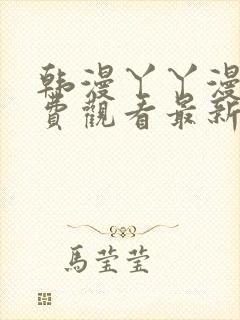 韩漫丫丫漫
费觀看最新
馬莹莹